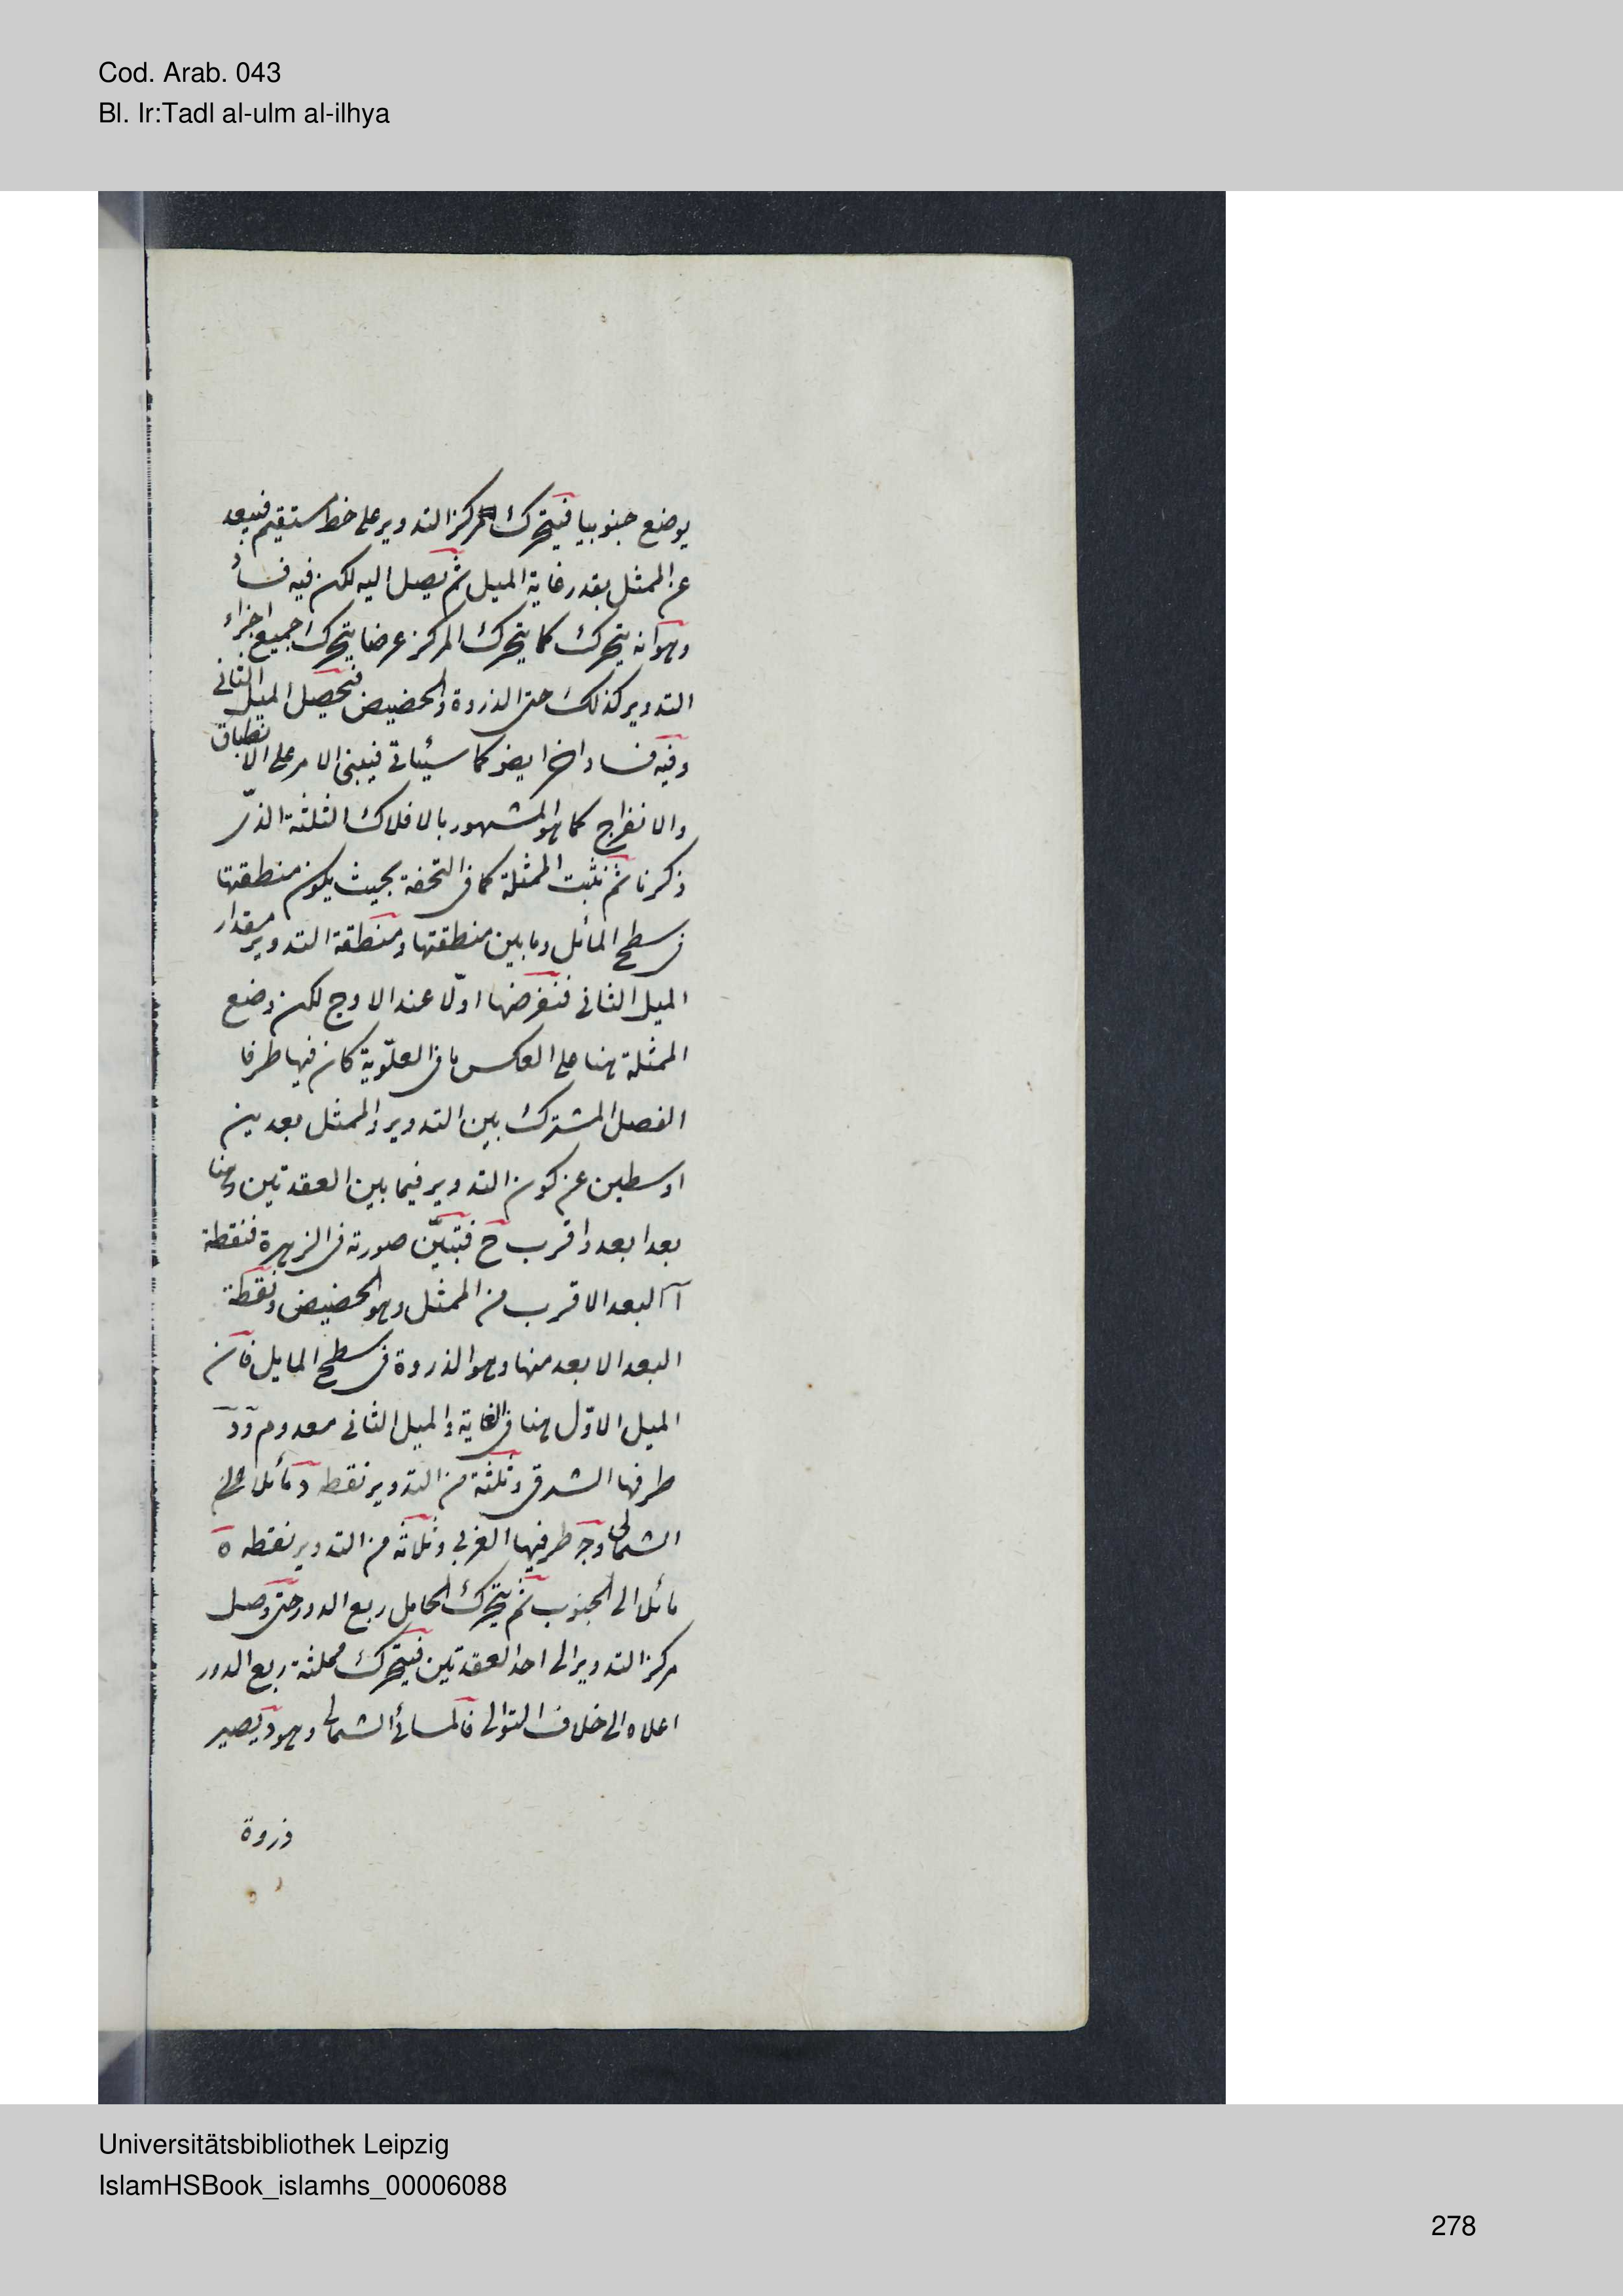 Cod. Arab. 043
Bl. Ir:Tadl al-ulm al-ilhya
يوضع جنوبيا فيتحرك مركز التدوير على خط مستقيم فيبعد
عن الممثل بقدر غاية الميل ثم يصل اليه لكن فيه فساد
وهو انه يتحرك كما يتحرك المركز عرضا يتحرك جميع اجزاء
التدوير كذلك حتى الذروة والحضيض فيحصل الميل الثاني
وفيه فساد اخر ايضو كما سيئاتي فيبنى الامر على الانطباق
والانفراج كما هو المشهور بالافلاك الثلثة الذى
ذكرنا ثم نثبت الممثلة كما فى التحفة بحيث يكون منطقتها
فى سطح المائل وما بين منطقتها ومنطقة التدوير مقدار
الميل الثانى فنفرضها اولا عند الاوج لكن وضع
الممثلة هنا على العكس ما فى العلوية كان فيها طرفا
الفصل المشترك بين التدوير والممثل بعدين
اوسطين عن كون التدوير فيما بين العقدتين وهنا
بعد ابعد واقرب ح فتبين صورته فى الزهرة فنقطة
آ البعد الاقرب من الممثل وهو الحضيض ونقطة
البعد الابعد منها وهو الذروة فى سطح المايل فان
الميل الاول هنا فى الغاية والميل الثانى معدوم ود
طرفها الشرقى وثلثة من التدوير نقطه د مائل الى
الشمالى وج طرفيها الغربى وثلاثة من التدوير نقطه ه
مائل الى الجنوب ثم يتحرك الحامل ربع الدور حتى وصل
مركز التدوير الى احد العقدتين فيتحرك ممثلة ربع الدور
اعلاه الى خلاف التوالى فالمسائى الشمالى وهو د يصير
ذروة
Universitätsbibliothek Leipzig
IslamHSBook_islamhs_00006088
278